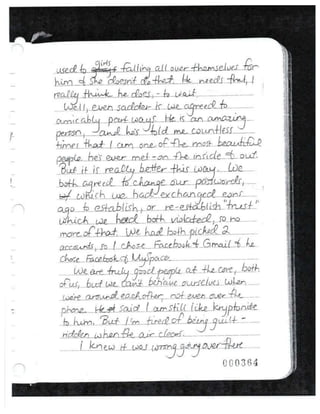 girls
used to guys falling all over themselves for
him & she doesn't do that. He needs that, I
really think he does, - to wait.
Well, even sadder is we agreed to
amicably part ways. He is an amazing
person, and he's told me countless
times that I am one of the most beautiful
people he's ever met - on the inside & out.
But it is really better this way. We
both agreed to change our passwords,
of which we had exchanged eons
ago to establish, or re-establish "trust"
which we had both violated, so no
more of that. We had both picked 2
accounts, so I chose Facebook & Gmail & he
chose Facebook & MySpace.
We are truly good people at the core, both
of us, but we can't behave ourselves when
we're around each other, not even over the
phone. He said I am still like kryptonite
to him. But I'm tired of being guilt-
ridden when the air clears.
I knew it was wrong going over there
000364